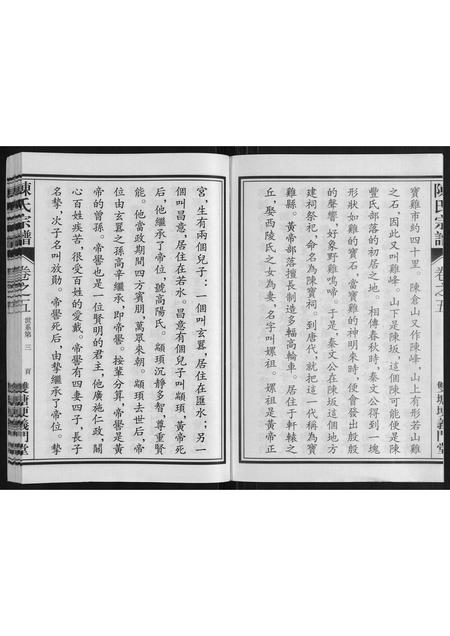 寶雞市約四十里。陳倉山又作陳峰，山上有形若山雞
之石，因此又叫雞峰。山下是陳坂，這個陳可能便是陳
豐氏部落的初居之地。相傳春秋時，秦文公得到一塊
形狀如雞的寶石，當寶雞的神明來時，便會發出殷殷
的聲響，好象野雞鳴啼。于是，秦文公在陳坂這個地方
建祠祭祀，命名為陳寶祠。到唐代，就把這一代稱為寶
雞縣。黃帝部落擅長制造多輻高輪車。居住于軒轅之
丘，娶西陵氏之女為妻，名字叫嫘祖。嫘祖是黃帝正
陳氏宗譜
卷之五
宮，生有兩個兒子：一個叫玄囂，居住在匯水；另一
個叫昌意，居住在若水。昌意有個兒子叫顓頊，黃帝死
后，他繼承了帝位，號高陽氏。顓頊沉靜多智，尊重賢
能。他當政期間四方賓朋，萬眾來朝。顓頊去世后，帝
位由玄囂之孫高辛繼承，即帝嚳。按輩分算，帝嚳是黃
帝的曾孫。帝嚳也是一位賢明的君主，他廣施仁政，關
心百姓疾苦，很受百姓的愛戴。帝嚳有四妻四子，長子
名摯，次子名叫放勛。帝嚳死后，由摯繼承了帝位。
陳氏宗譜
卷之五
世系第三頁
義門堂